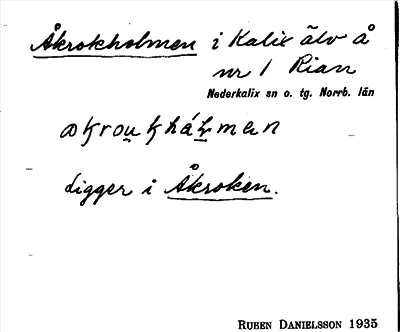 Åkrokholmen i Kalix älv å
nr 1 Rian
Nederkalix sn o. tg. Norrb. län
ligger i Åkroken.
RUBEN DANIELSSON 1935